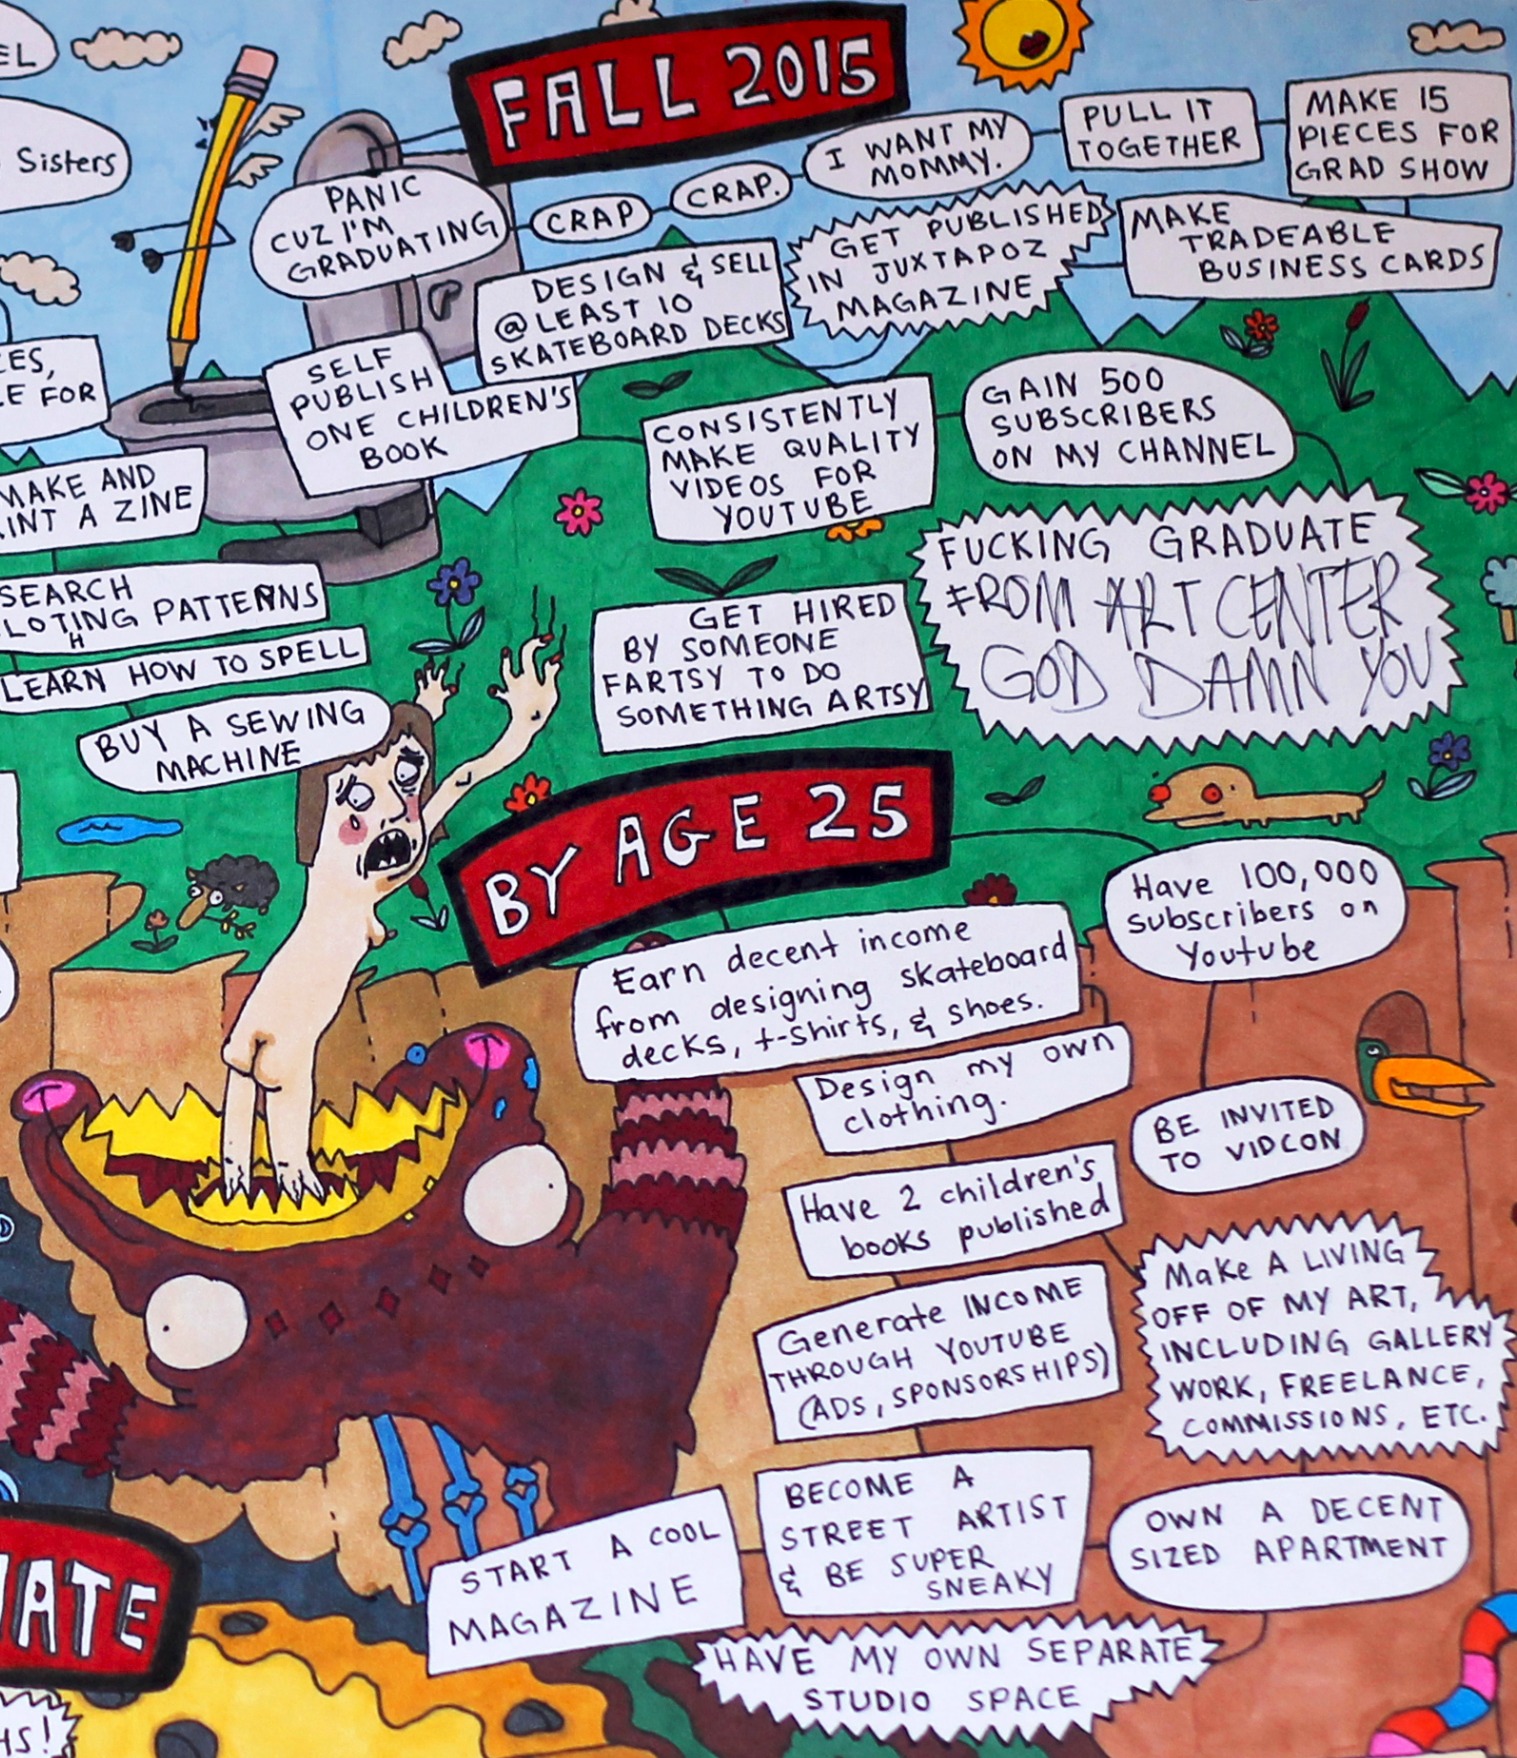 EL
Sisters
FALL 2015
PANIC
CUZ I'M
GRADUATING
CRAP
CRAP.
I WANT MY
MOMMY.
PULL IT
TOGETHER
MAKE 15
PIECES FOR
GRAD SHOW
MAKE
TRADEABLE
BUSINESS CARDS
GET PUBLISHED
IN JUXTAPOZ
MAGAZINE
DESIGN & SELL
@ LEAST 10
SKATEBOARD DECKS
SELF
PUBLISH
ONE CHILDREN'S
BOOK
CONSISTENTLY
MAKE QUALITY
VIDEOS FOR
YOUTUBE
GAIN 500
SUBSCRIBERS
ON MY CHANNEL
FUCKING GRADUATE
FROM ART CENTER
GOD DAMN YOU
GET HIRED
BY SOMEONE
FARTSY TO DO
SOMETHING ARTSY
CES,
LE FOR
MAKE AND
INT A ZINE
SEARCH
LOTING PATTERNS
H
LEARN HOW TO SPELL
BUY A SEWING
MACHINE
BY AGE 25
Have 100,000
subscribers on
Youtube
BE INVITED
TO VIDCON
Earn decent income
from designing skateboard
decks, t-shirts, & shoes.
Design my own
clothing.
Have 2 children's
books published
Make A LIVING
OFF OF MY ART,
INCLUDING GALLERY
WORK, FREELANCE,
COMMISSIONS, ETC.
Generate INCOME
THROUGH YOUTUBE
(ADS, SPONSORSHIPS)
OWN A DECENT
SIZED APARTMENT
BECOME A
STREET ARTIST
& BE SUPER
SNEAKY
START A COOL
MAGAZINE
HAVE MY OWN SEPARATE
STUDIO SPACE
ATE
HS!